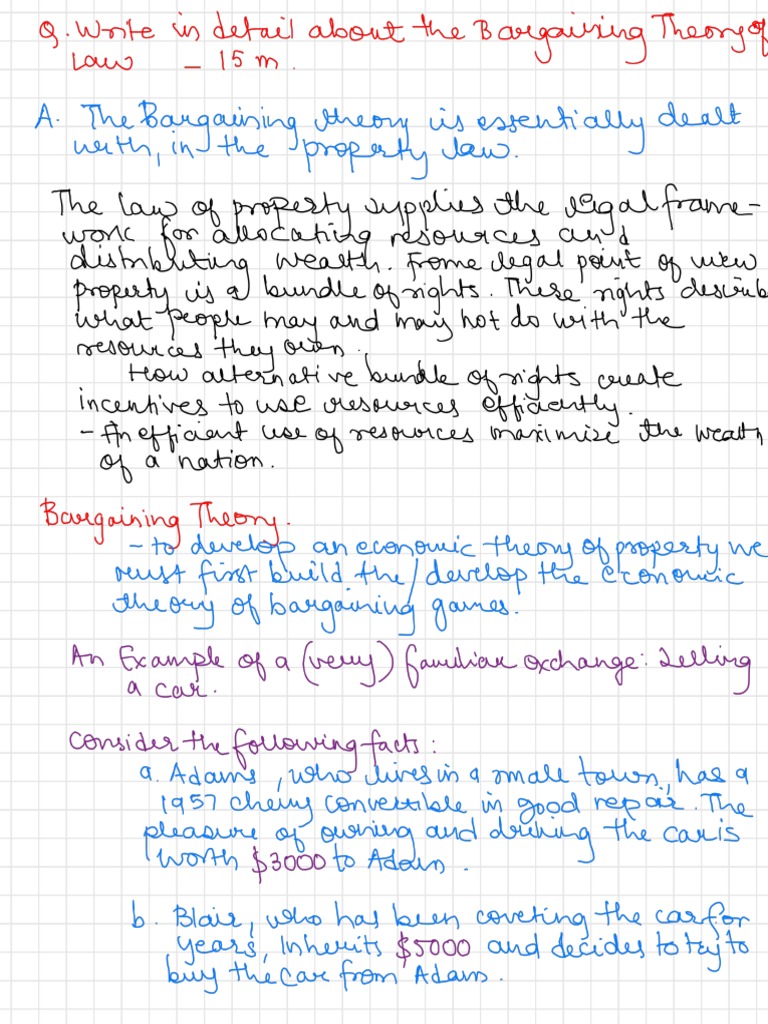 Q. Write in detail about the Bargaining Theory of
Law - 15 m.
A. The Bargaining theory is essentially dealt
with, in the property law.
The law of property supplies the legal frame-
work for allocating resources and
distributing wealth. Frome legal point of view
property is a bundle of rights. These rights describ
what people may and may not do with the
resources they own.
How alternative bundle of rights create
incentives to use resources efficiently.
- An efficient use of resources maximize the wealth
of a nation.
Bargaining Theory.
- to develop an economic theory of property we
must first build the/develop the economic
theory of bargaining games.
An Example of a (very) familiar exchange: Selling
a car.
Consider the following facts:
a. Adams, who lives in a small town, has a
1957 chevy convertible in good repair. The
pleasure of owning and driving the car is
worth $3000 to Adam.
b. Blair, who has been coveting the car for
years, inherits $5000 and decides to try to
buy the car from Adam.